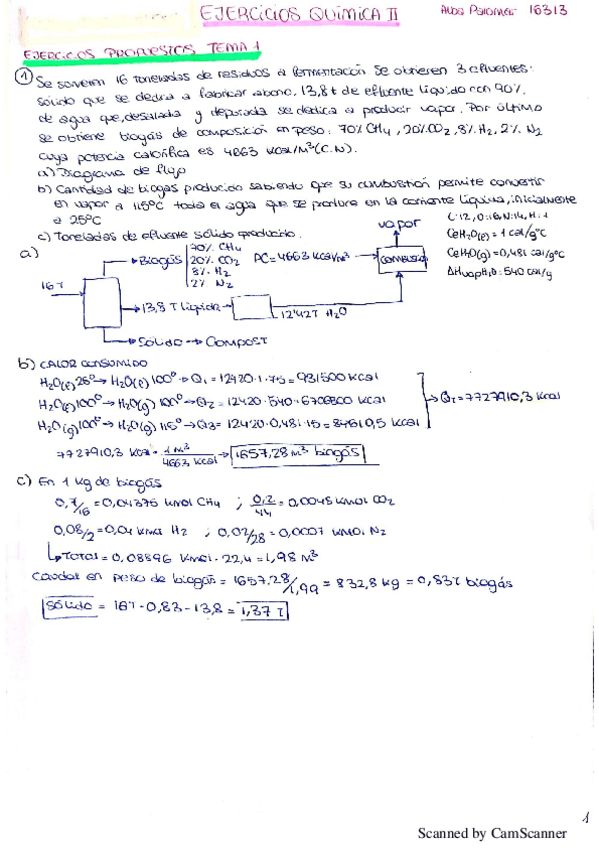 EJERCICIOS QUÍMICA II
Alba Palomer 16313
EJERCICIOS PROPUESTOS TEMA 1
1 Se someten 16 toneladas de residuos a fermentación. Se obtienen 3 efluentes:
sólido que se dedica a fabricar abono, 13,8 t de efluente líquido con 90%
de agua que, desalada y depurada se dedica a producir vapor. Por último
se obtiene biogás de composición en peso: 70% CH4, 20% CO2, 8% H2, 2% N2
cuya potencia calorífica es 4663 Kcal/m³ (C.N).
a) Diagrama de flujo
b) Cantidad de biogas producido sabiendo que su combustión permite convertir
en vapor a 115ºC toda el agua que se produce en la corriente líquida, inicialmente
a 25ºC
c) Toneladas de efluente sólido producido.
C:12, O:16, N:14, H:1
CeH2O(l) = 1 cal/gºC
CeH2O(g) = 0,481 cal/gºC
ΔHvapH2O: 540 cal/g
a)
16T
Biogás
70% CH4
20% CO2
8% H2
2% N2
PC = 4663 Kcal/m³
vapor
combustión
13,8 T líquida
12'42T H2O
Sólido → Compost
b) CALOR CONSUMIDO
H2O(l) 25º → H2O(l) 100º → Q1 = 12420·1·75 = 931500 Kcal
H2O(l) 100º → H2O(g) 100º → Q2 = 12420·540 = 6706800 Kcal
H2O(g) 100º → H2O(g) 115º → Q3 = 12420·0,481·15 = 89610,5 Kcal
QT = 7727910,3 Kcal
7727910,3 Kcal · 1 m³/4663 Kcal → 1657,28 m³ biogás
c) En 1 kg de biogás
0,7/16 = 0,04375 kmol CH4 ; 0,2/44 = 0,0045 kmol CO2
0,08/2 = 0,04 kmol H2 ; 0,02/28 = 0,0007 kmol N2
Total = 0,08896 kmol · 22,4 = 1,98 m³
Caudal en peso de biogás = 1657,28/1,99 = 832,8 kg = 0,83T biogás
Sólido = 16T - 0,83 - 13,8 = 1,37 T
1
Scanned by CamScanner